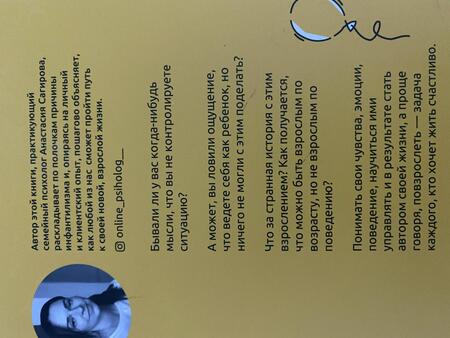 Автор этой книги, практикующий
семейный психолог Анастасия Сагирова,
раскладывает по полочкам причины
инфантилизма и, опираясь на личный
и клиентский опыт, пошагово объясняет,
как любой из нас сможет пройти путь
к своей новой, взрослой жизни.
online_psiholog__
Бывали ли у вас когда-нибудь
мысли, что вы не контролируете
ситуацию?
А может, вы ловили ощущение,
что ведете себя как ребенок, но
ничего не могли с этим поделать?
Что за странная история с этим
взрослением? Как получается,
что можно быть взрослым по
возрасту, но не взрослым по
поведению?
Понимать свои чувства, эмоции,
поведение, научиться ими
управлять и в результате стать
автором своей жизни, а проще
говоря, повзрослеть — задача
каждого, кто хочет жить счастливо.